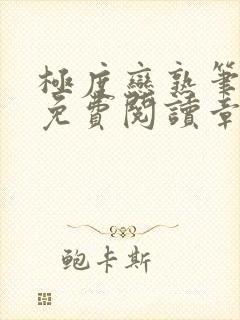 極度戀熟筆
免費閱讀章
鮑卡斯